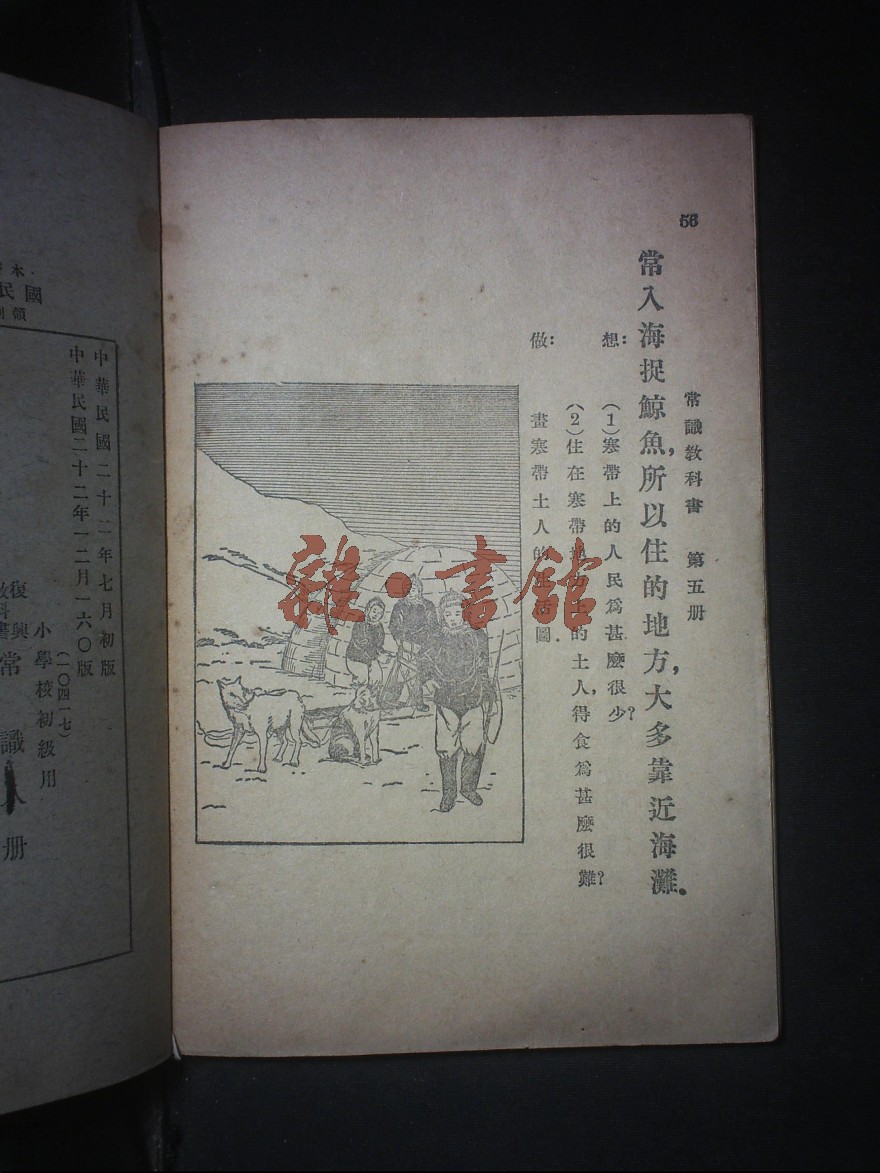 56
常識教科書 第五册
常入海捉鯨魚，所以住的地方，大多靠近海灘．
想：
(1)寒帶上的人民爲甚麼很少？
(2)住在寒帶地方上的土人，得食爲甚麼很難？
做：
畫寒帶土人的生活圖．
雜·書館
國民
中華民國二十二年七月初版
中華民國二十二年一二月一六〇版
(一〇四一七)
小學校初級用
復興
教科書
常識
册